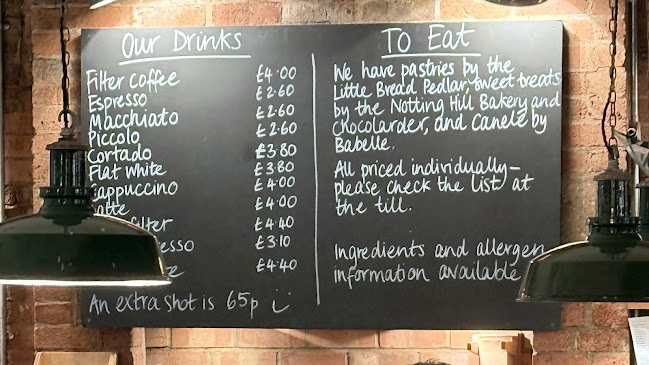 Our Drinks
Filter Coffee £4.00
Espresso £2.60
Macchiato £2.60
Piccolo £2.60
Cortado £3.80
Flat White £3.80
Cappuccino £4.00
£4.00
£4.40
£3.10
£4.40
An extra shot is 65p
To Eat
We have pastries by the
Little Bread Pedlar, sweet treats
by the Notting Hill Bakery and
Chocolarder, and Canelé by
Babelle.
All priced individually—
please check the list at
the till.
Ingredients and allergen
information available